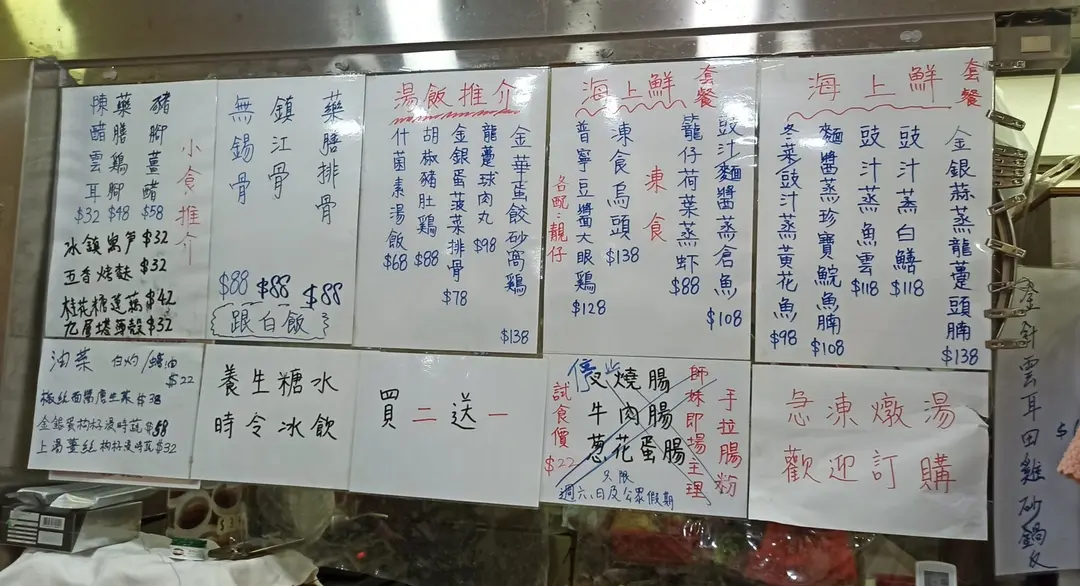 小食推介
豬腳薑醋 $58
藥膳鷄腳 $48
陳醋雲耳 $32
$32
五香烤麩 $32
桂花糖蓮藕 $42
$32
藥膳排骨 $88
鎮江骨 $88
無錫骨 $88
跟白飯
湯飯推介
金華蛋餃砂窩鷄 $138
龍躉球肉丸 $98
金銀蛋菠菜排骨 $78
胡椒豬肚鷄 $88
什菌素湯飯 $68
海上鮮
套餐
豉汁麵醬蒸倉魚 $108
籠仔荷葉蒸蝦 $88
凍食
凍食烏頭 $138
普寧豆醬大眼鷄 $128
各配:靚仔
海上鮮
套餐
金銀蒜蒸龍躉頭腩 $138
豉汁蒸白鱔 $118
豉汁蒸魚雲 $118
麵醬蒸珍寶鯇魚腩 $108
冬菜豉汁蒸黃花魚 $98
油菜 白灼/蠔油
$22
椒絲 $38
金銀蛋杞籽浸時蔬 $58
上湯薑絲杞籽浸時蔬 $32
養生糖水
時令冰飲
買二送一
手拉腸粉
師妹即場主理
停
叉燒腸
牛肉腸
葱花蛋腸
試食價 $22
只限
週六、日及公眾假期
急凍燉湯
歡迎訂購
雲耳田雞砂鍋